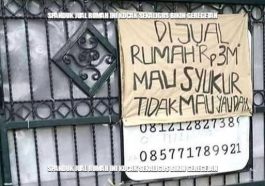 SPANDUK JUAL RUMAH INI KOCAK SEKALIGUS BIKIN GEREGETAN
DIJUAL
RUMAH Rp3M
MAU SYUKUR
TIDAK MAU YAUDAH
085771789921
SPANDUK JUAL RUMAH INI KOCAK SEKALIGUS BIKIN GEREGETAN